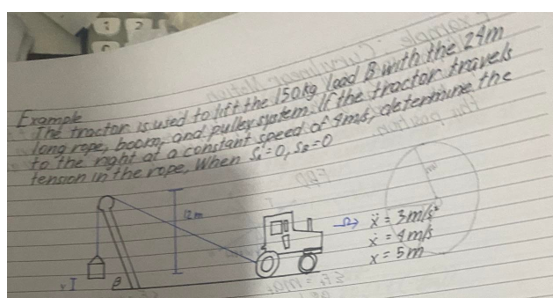 Example
The tractor is used to lift the 150kg load B with the 24m
long rope, boom, and pulley system. If the tractor travels
to the right at a constant speed of 4m/s, determine the
tension in the rope, when SA=0, SB=0
12m
ẍ = 3m/s²
ẋ = 4m/s
x = 5m
B